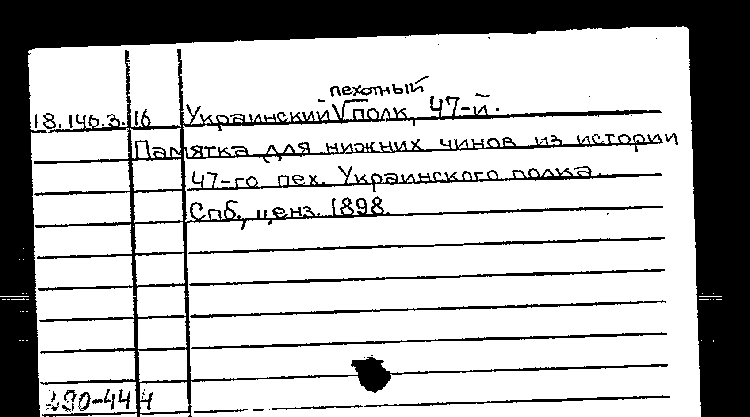 пехотный
18.146.3.16 Украинский √ полк, 47-й.
Памятка для нижних чинов из истории
47-го пех. Украинского полка.
Спб., ценз. 1898.
490-44 4